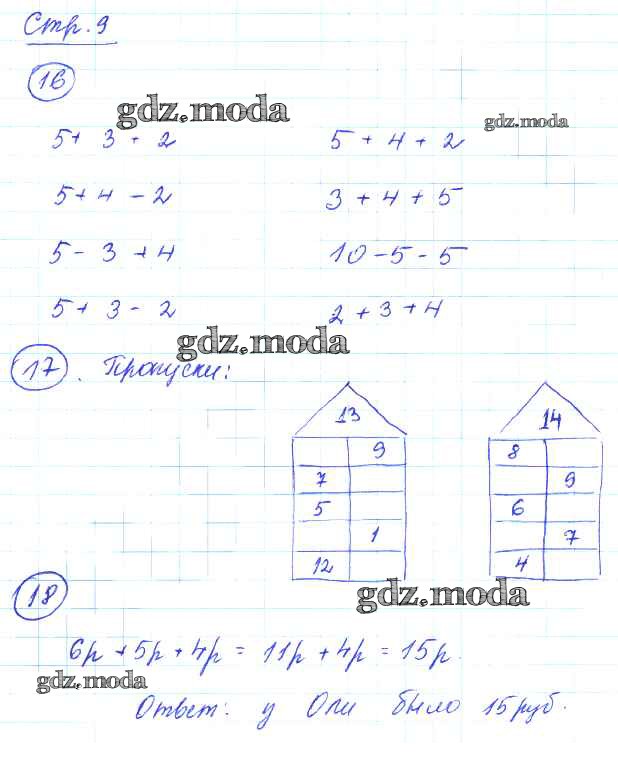 Стр. 9
16
gdz.moda
gdz.moda
5 + 3 + 2
5 + 4 + 2
5 + 4 - 2
3 + 4 + 5
5 - 3 + 4
10 - 5 - 5
5 + 3 - 2
2 + 3 + 4
gdz.moda
17. Пропуски:
13
9
7
5
1
12
14
8
9
6
7
4
18
gdz.moda
6р + 5р + 4р = 11р + 4р = 15р.
gdz.moda
Ответ: у Оли было 15 руб.